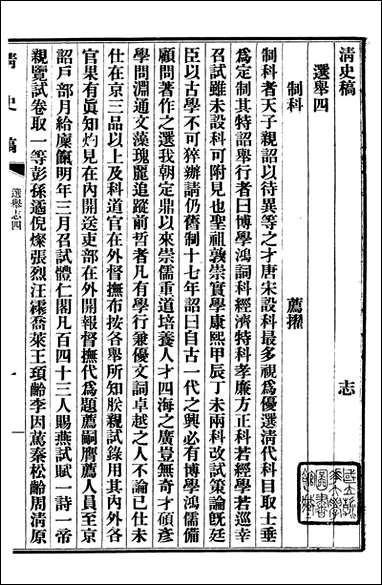 清史稿　志
選舉四
制科　薦擢
制科者天子親詔以待異等之才唐宋設科最多視為優選清代科目取士垂
為定制其特詔舉行者曰博學鴻詞科經濟特科孝廉方正科若經學若巡幸
召試雖未設科可附見也聖祖敦崇實學康熙甲辰丁未兩科改試策論旣廷
臣以古學不可猝辦請仍舊制十七年詔曰自古一代之興必有博學鴻儒備
顧問著作之選我朝定鼎以來崇儒重道培養人才四海之廣豈無奇才碩彥
學問淵通文藻瑰麗追蹤前哲者凡有學行兼優文詞卓越之人不論已仕未
仕在京三品以上及科道官在外督撫布按各舉所知朕親試錄用其內外各
官果有眞知灼見在內開送吏部在外開報督撫代為題薦嗣膺薦人員至京
詔戶部月給廩餼明年三月召試體仁閣凡百四十三人賜燕試賦一詩一帝
親覽試卷取一等彭孫遹倪燦張烈汪霦喬萊王頊齡李因篤秦松齡周清原
清史稿
選舉志四
一